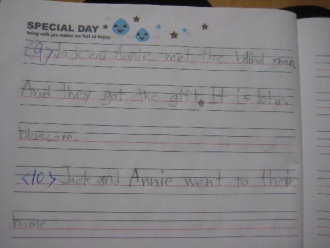 SPECIAL DAY
being with you makes me feel so happy
<9> Jack and Annie met the blind man.
And they got the gift. It is lotus
blossom.
<10> Jack and Annie went to their
home